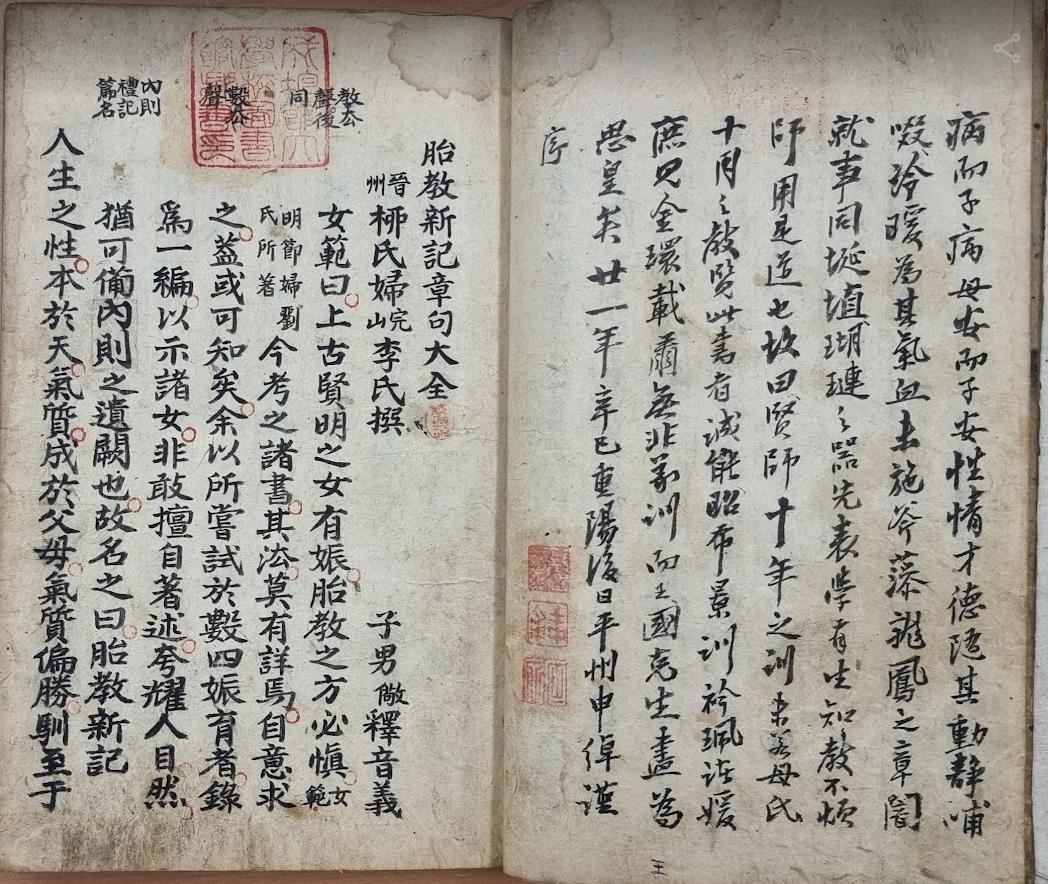 病而子病母安而子安性情才德隨其動靜哺
啜冷暖為其氣血未施斧藻龍鳳之章闇
就事同埏埴瑚璉之器先表學有生知教不煩
師用是道也故曰賢師十年之訓未若母氏
十月之教覽此書者誠能昭布景訓衿珮諸媛
庶見金環載肅無非彖訓而王國克生盡為
思皇矣廿一年辛巳重陽後日平州申綽謹
序
王
教去
聲後
同
數去
聲
內則
禮記
篇名
胎教新記章句大全
晉州柳氏婦完山李氏撰 子男儆釋音義
女範曰上古賢明之女有娠胎教之方必愼女範
明節婦劉氏所著今考之諸書其法莫有詳焉自意求
之葢或可知矣余以所嘗試於數四娠育者錄
爲一編以示諸女非敢擅自著述夸耀人目然
猶可備內則之遺闕也故名之曰胎教新記
人生之性本於天氣質成於父母氣質偏勝馴至于